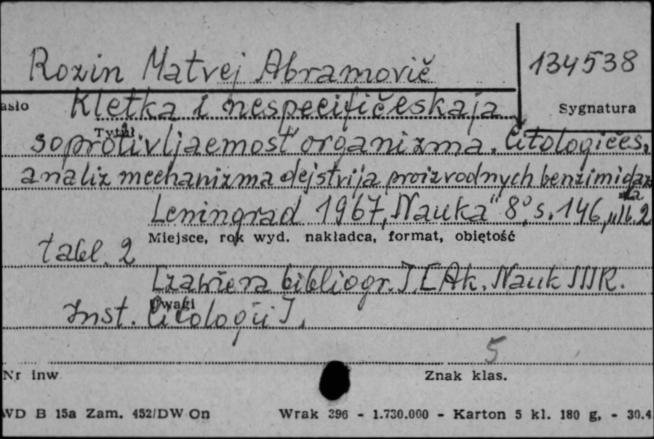 Rozin Matvej Abramovič
134538
asło
Kletka i nespecifičeskaja
Sygnatura
Tytuł
soprotivljaemost' organizma. Citologičes.
analiz mechanizma dejstvija proizvodnych benzimidazo
la
Leningrad 1967, "Nauka" 8°, s. 146, il. 2
Miejsce, rok wyd. nakładca, format, objętość
tabl. 2
[zawiera bibliogr.]. [Ak. Nauk SSSR.
Uwagi
Inst. Citologii].
5
Nr inw
Znak klas.
WD B 15a Zam. 452/DW On
Wrak 396 - 1.730.000 - Karton 5 kl. 180 g, - 30.4